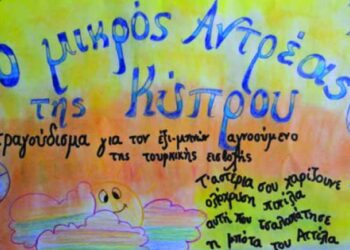 Ο μικρός Αντρέας
της Κύπρου
τραγούδισμα για τον έξι-μηνών αγνοούμενο
της τουρκικής εισβολής
τ' αστέρια σου χαρίζουνε
ολόχρυση
αυτή που τσαλαπάτησε
η μπότα του Αττίλα